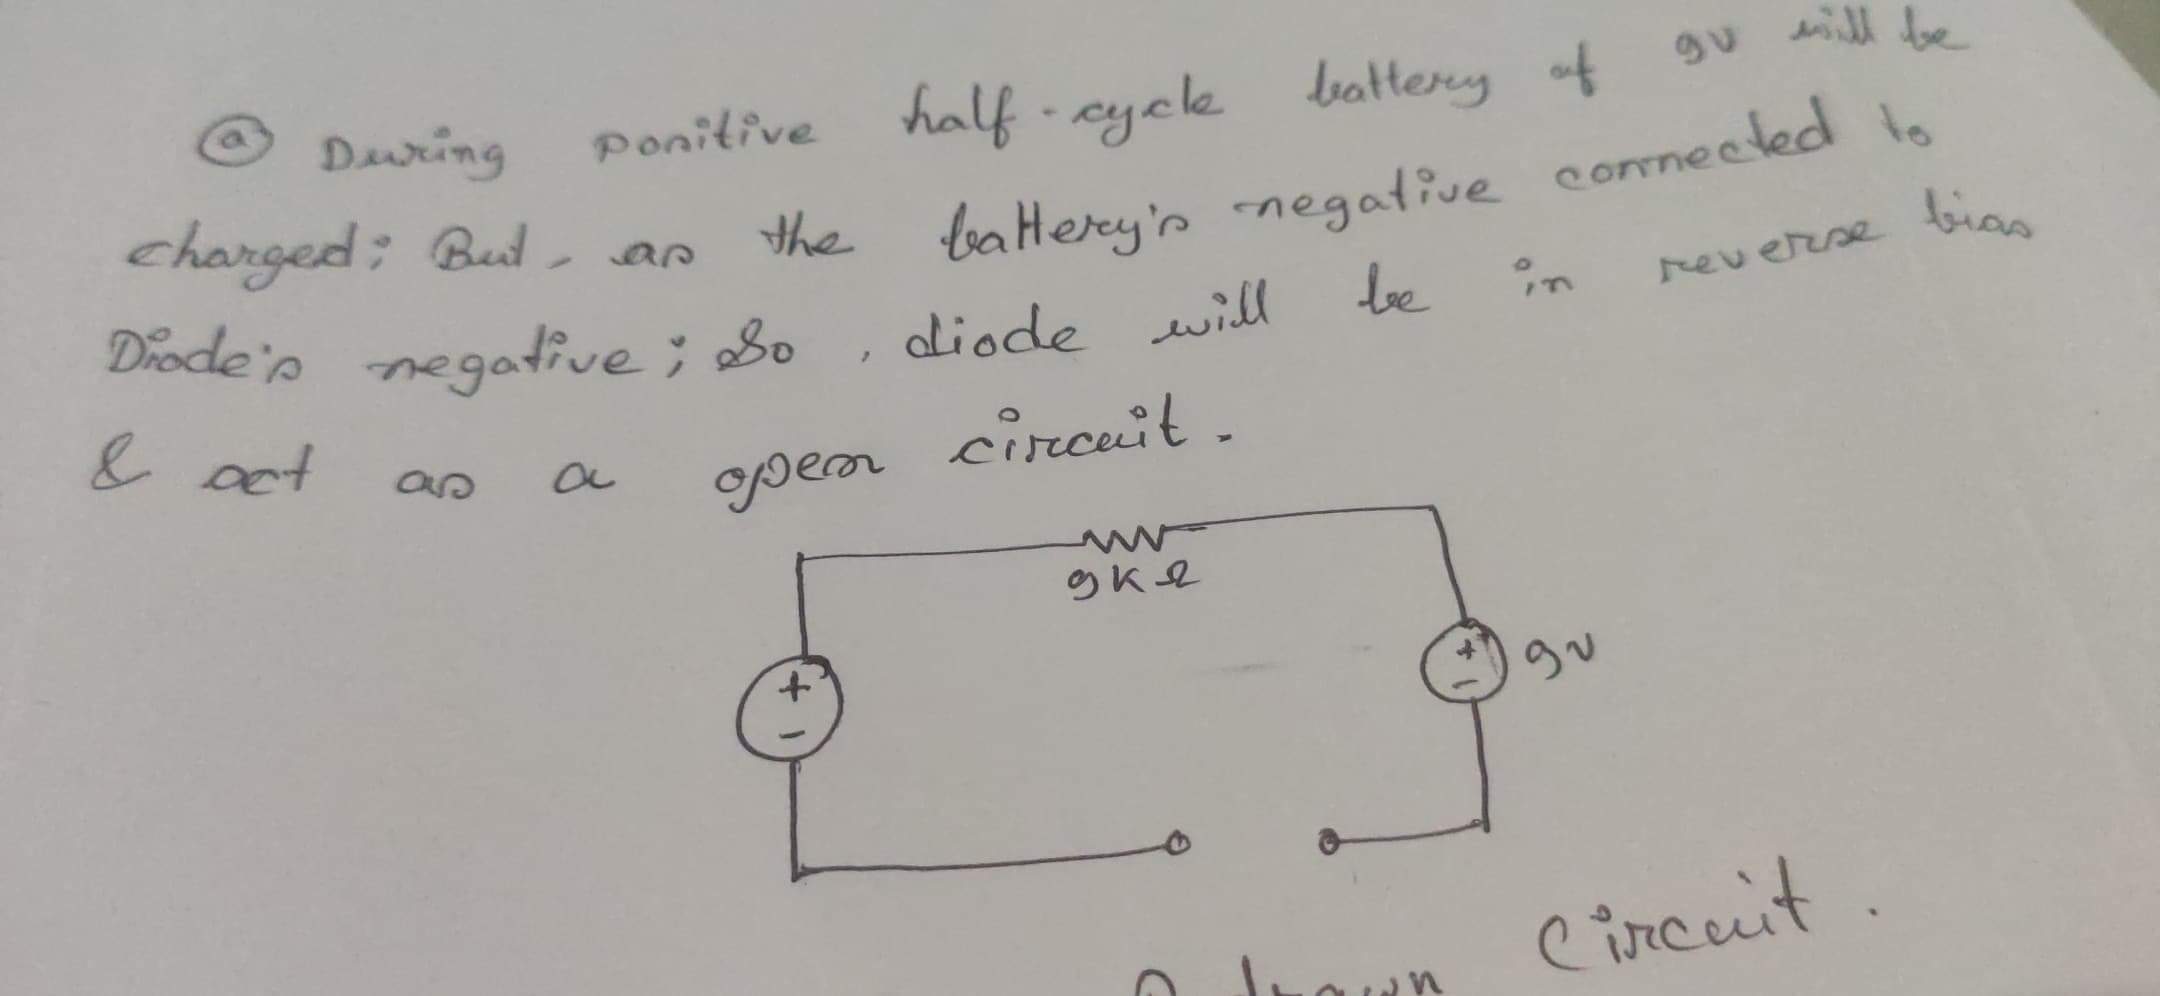 (a) During positive half-cycle battery of 9v will be
charged; But, as the battery's negative connected to
Diode's negative; So, diode will be in reverse bias
& act as a open circuit.
9KΩ
+
-
+
-
9v
drawn Circuit.